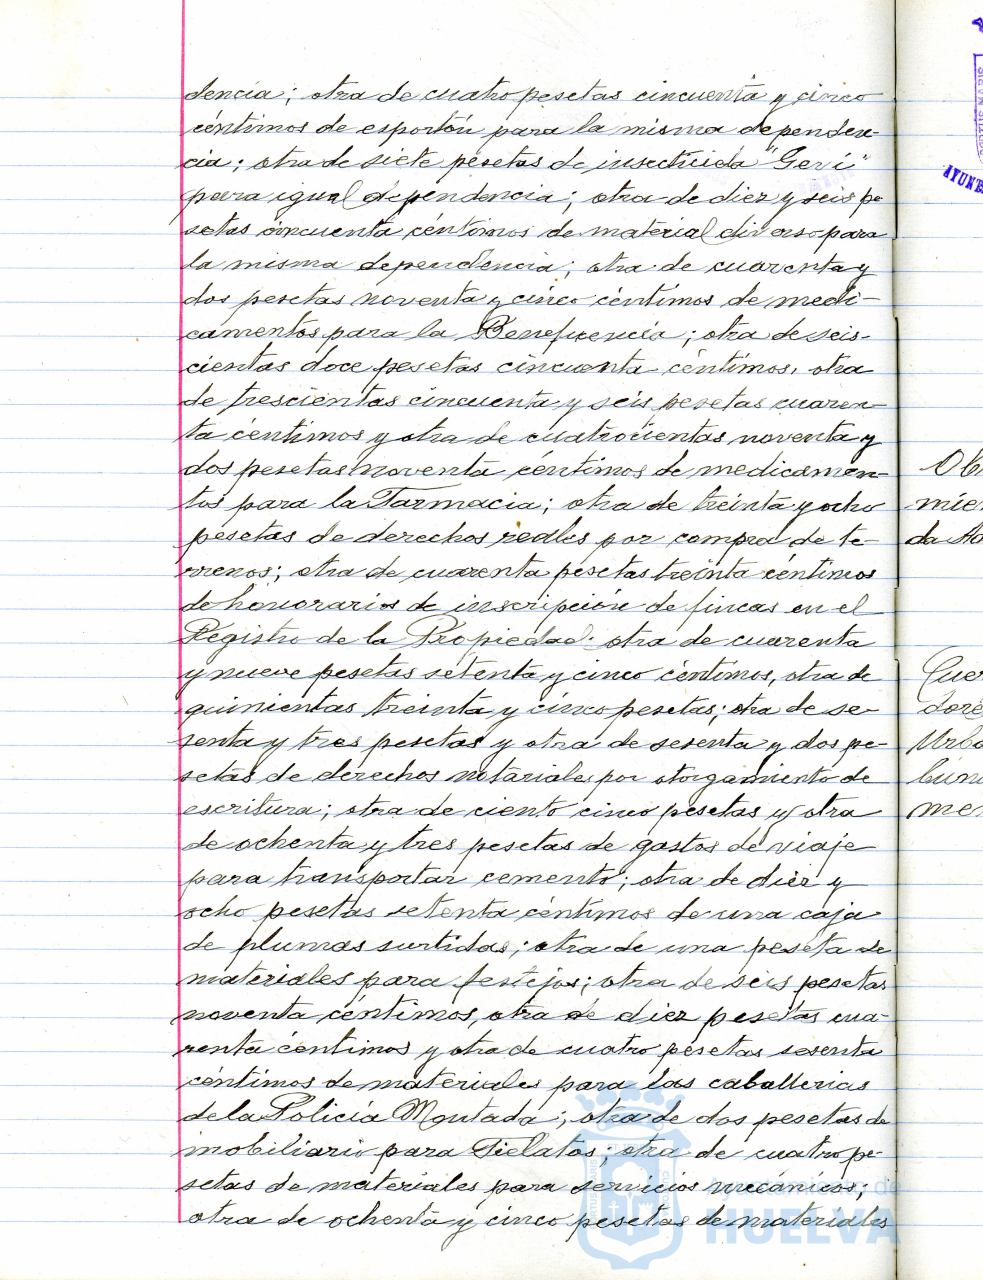 dencia; otra de cuatro pesetas cincuenta y cinco
céntimos de esportón para la misma dependen-
cia; otra de siete pesetas de insecticida "Gevi"
para igual dependencia; otra de diez y seis pe-
setas cincuenta céntimos de material diverso para
la misma dependencia; otra de cuarenta y
dos pesetas noventa y cinco céntimos de medi-
camentos para la Beneficencia; otra de seis-
cientas doce pesetas cincuenta céntimos, otra
de trescientas cincuenta y seis pesetas cuaren-
ta céntimos y otra de cuatrocientas noventa y
dos pesetas noventa céntimos de medicamen-
tos para la Farmacia; otra de treinta y ocho
pesetas de derechos reales por compra de te-
rrenos; otra de cuarenta pesetas treinta céntimos
de honorarios de inscripción de fincas en el
Registro de la Propiedad; otra de cuarenta
y nueve pesetas setenta y cinco céntimos, otra de
quinientas treinta y cinco pesetas; otra de se-
senta y tres pesetas y otra de sesenta y dos pe-
setas de derechos notariales por otorgamiento de
escritura; otra de ciento cinco pesetas y otra
de ochenta y tres pesetas de gastos de viaje
para transportar cemento; otra de diez y
ocho pesetas setenta céntimos de una caja
de plumas surtidas; otra de una peseta de
materiales para festejos; otra de seis pesetas
noventa céntimos, otra de diez pesetas cua-
renta céntimos y otra de cuatro pesetas sesenta
céntimos de materiales para las caballerias
de la Policía Montada; otra de dos pesetas de
mobiliario para Fielatos; otra de cuatro pe-
setas de materiales para servicios mecánicos;
otra de ochenta y cinco pesetas de materiales
Ayuntamiento de
HUELVA